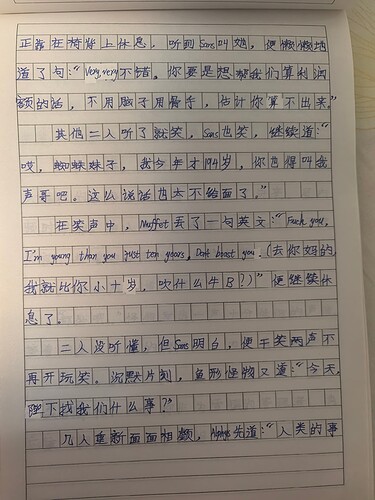 正靠在椅背上休息，听到Sans叫她，便懒懒地
道了句：“Very,very不错。你要是想帮我们算利润
额的话，不用脑子用骨手，估计你算不出来。”
其他二人听了就笑，Sans也笑，继续道：“
哎，蜘蛛妹子，我今年才194岁，你也得叫我
声哥吧。这么说话也太不给面了。”
在笑声中，Muffet丢了一句英文：“Fuck you,
I'm young than you just ten years, Don't boast you.（去你妈的，
我就比你小十岁，吹什么牛B？）”便继续休
息了。
二人没听懂，但Sans明白，便干笑两声不
再开玩笑。沉默片刻，鱼形怪物又道：“今天，
陛下找我们什么事？”
几人重新面面相觑，Alphys先道：“人类的事